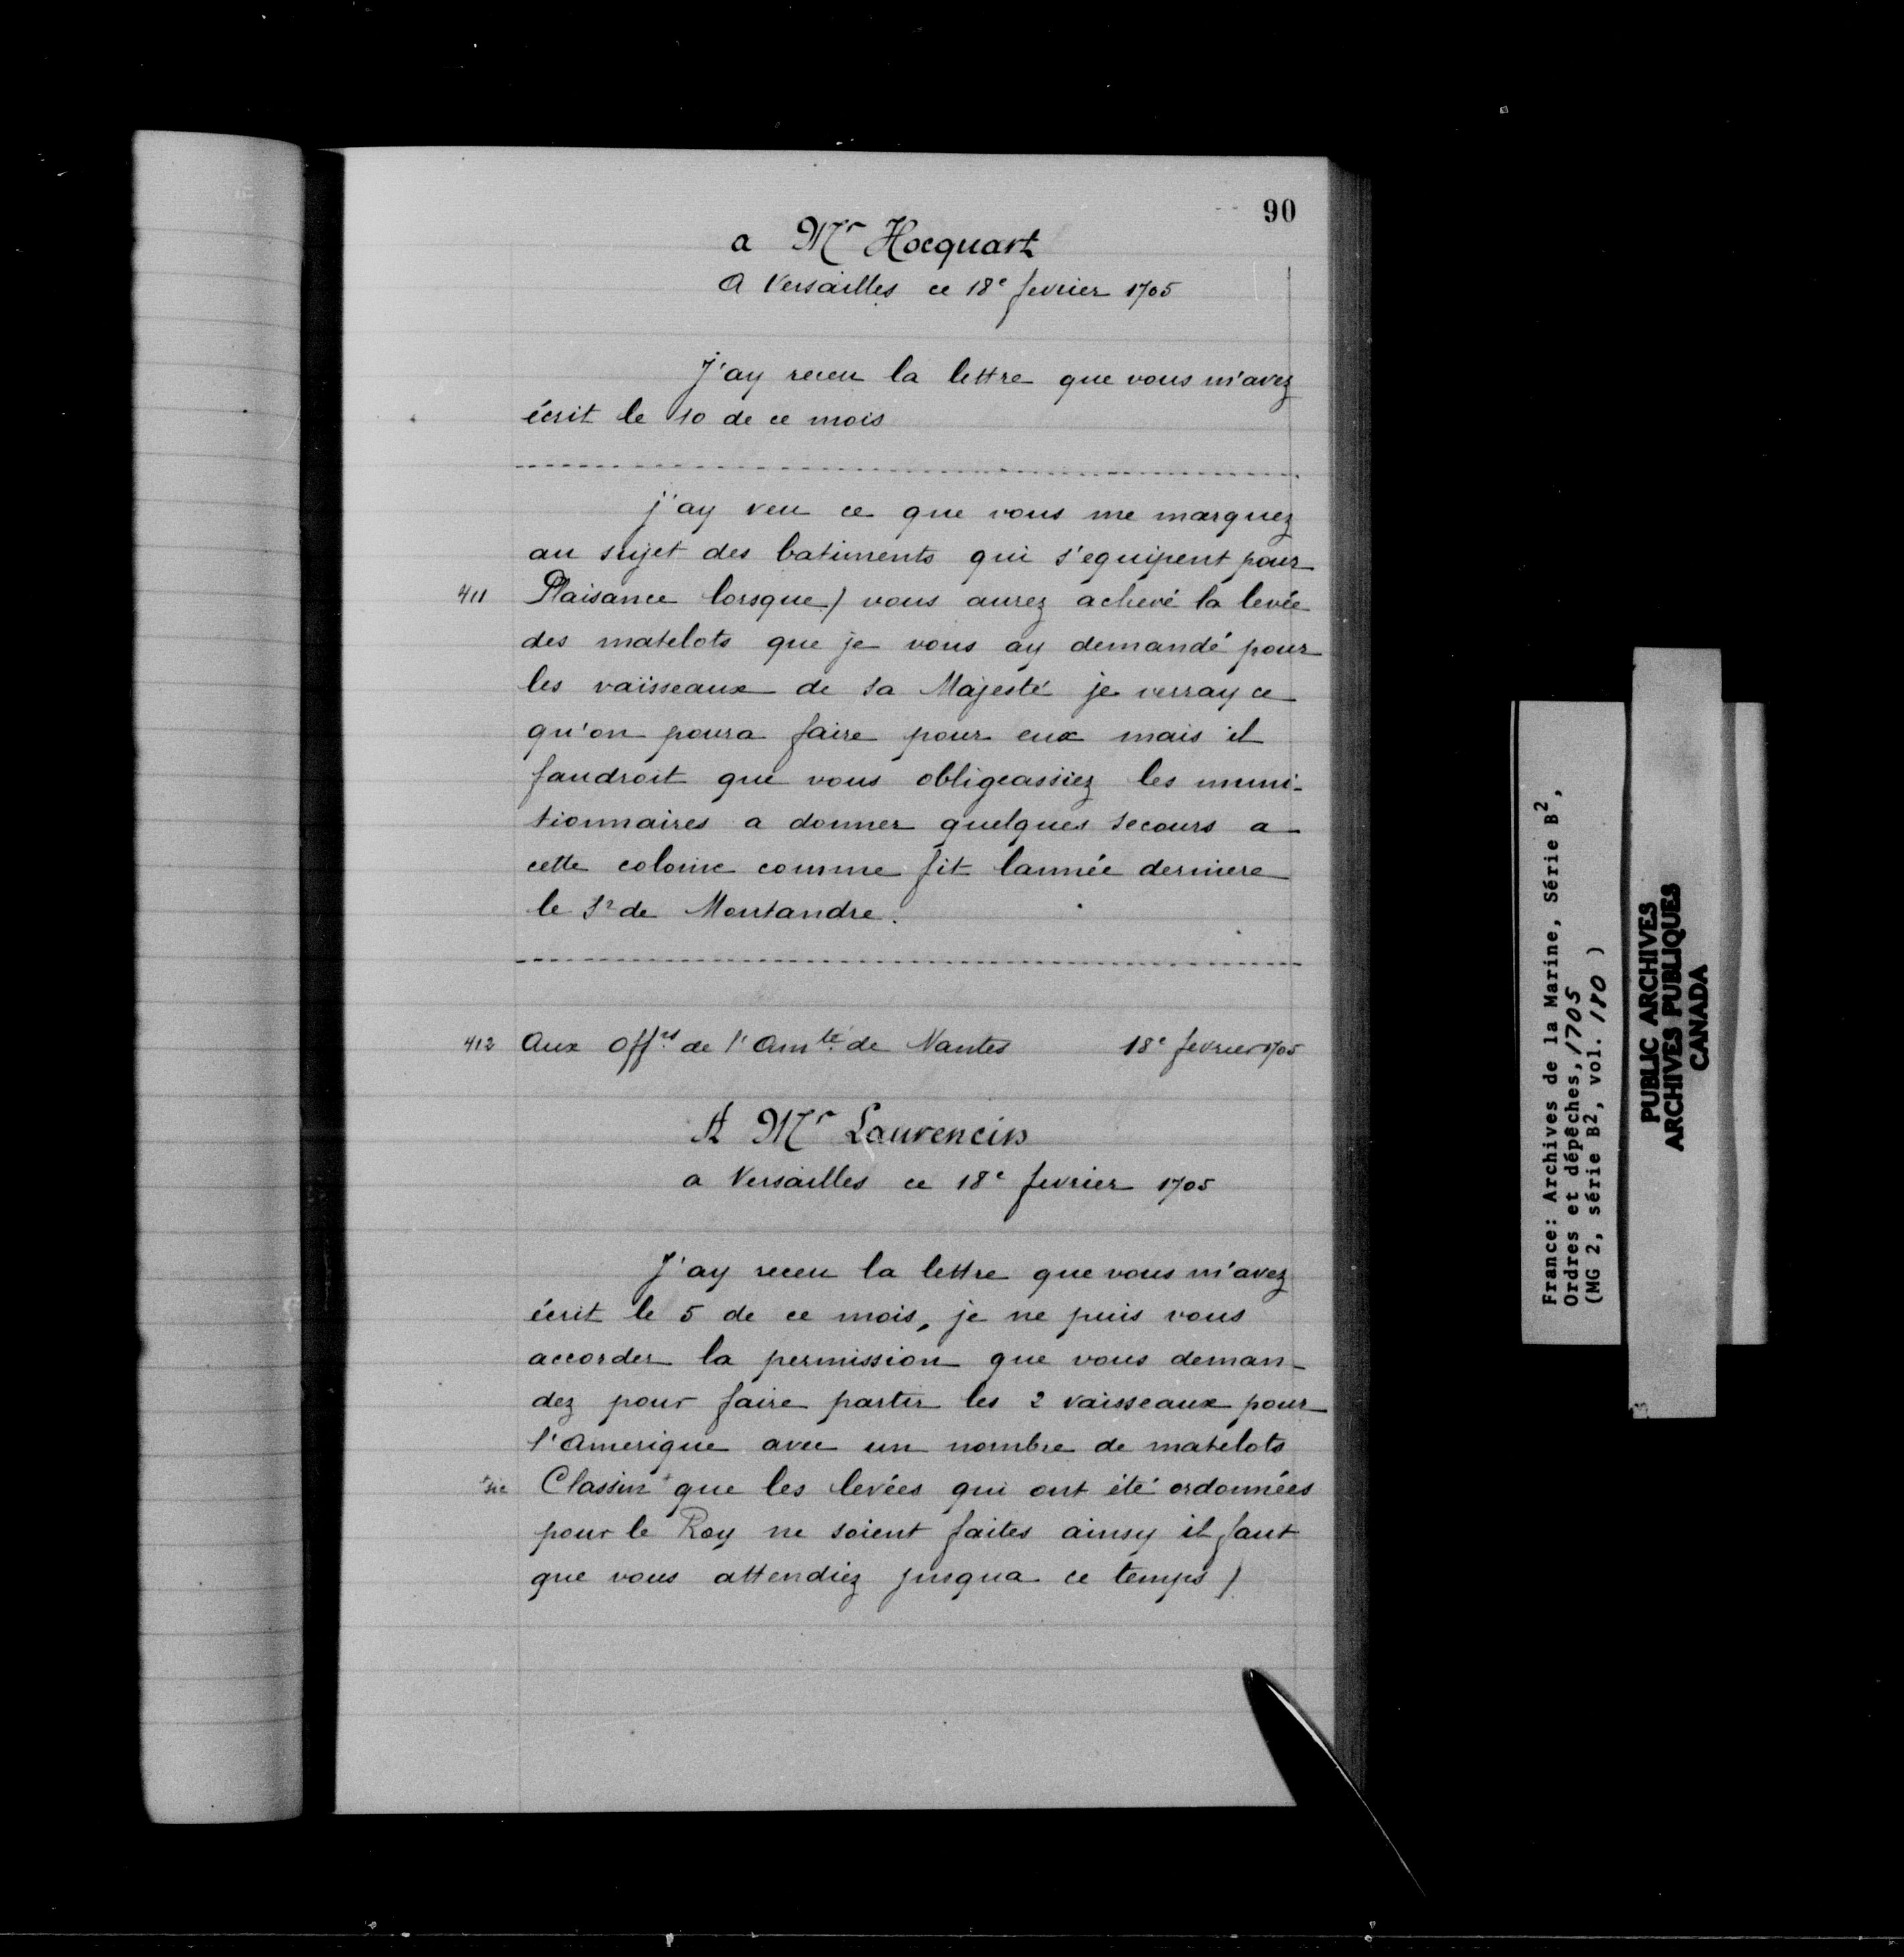 90
a Mr Hocquart
A Versailles ce 18e fevrier 1705
J'ay receu la lettre que vous m'avez
écrit le 10 de ce mois
j'ay veu ce que vous me marquez
au sujet des batiments qui s'equipent pour
411 Plaisance lorsque) vous aurez achevé la levée
des matelots que je vous ay demandé pour
les vaisseaux de sa Majesté je verray ce
qu'on poura faire pour eux mais il
faudroit que vous obligeassiez les muni-
tionnaires a donner quelques secours a
cette colonie comme fit lannée derniere
le Sr de Montandre.
412 Aux Offrs de l'Amté de Nantes 18e fevrier 1705
A Mr Laurencin
a Versailles ce 18e fevrier 1705
J'ay receu la lettre que vous m'avez
écrit le 5 de ce mois, je ne puis vous
accorder la permission que vous deman-
dez pour faire partir les 2 vaisseaux pour
l'Amerique avec un nombre de matelots
+sic Classin+ que les levées qui ont été ordonnées
pour le Roy ne soient faites ainsy il faut
que vous attendiez jusqua ce temps)
France: Archives de la Marine, Série B2,
Ordres et dépêches, 1705
(MG 2, série B2, vol. 180 )
PUBLIC ARCHIVES
ARCHIVES PUBLIQUES
CANADA